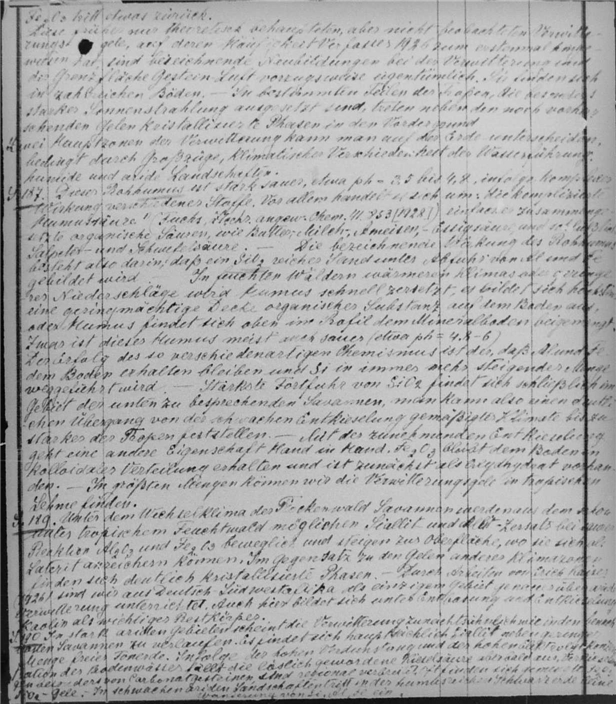 Fe2O3 tritt etwas zurück.
Diese früher nur theoretisch behaupteten, aber nicht beobachteten Verwitte-
rungs gele, auf deren Häufigkeit Verfasser 1926 zum erstenmal hinge-
wiesen hat, sind bezeichnende Neubildungen bei der Verwitterung und
der Grenzfläche Gestein-Luft vorzugsweise eigentümlich. Sie finden sich
in zahlreichen Böden. — In bestimmten Teilen der Tropen, die besonders
starker Sonnenstrahlung ausgesetzt sind, treten neben den noch vorherr-
schenden Gelen kristallisierte Phasen in den Vordergrund
Zwei Hauptzonen der Verwitterung kann man auf der Erde unterscheiden,
bedingt durch Großzüge, klimatischer Verschiedenheit der Wasserführung
humide und aride Landschaften.
S. 187. Dieser Rohhumus ist stark sauer, etwa ph = 3,5 bis 4,8, infolge komplexer
Wirkung verschiedener Stoffe. Vor allem handelt es sich um: die komplizierte
"Humussäure" (Fuchs, Ztschr. angew. Chem. 41. 853 (1928)) einfacher zusammenge-
setzte organische Säuren, wie Butter-, Milch-, Ameisen-, Essigsäure, und
Salpeter- und Schwefelsäure. — Die bezeichnende Wirkung des Rohhumus
besteht also darin, daß ein SiO2 reicher Sand unter Abfuhr von Al und Fe
gebildet wird — In feuchten Wäldern wärmeren Klimas oder geringe-
rer Niederschläge wird Humus schnell zersetzt, es bildet sich höchstens
eine geringmächtige Decke organischer Substanz auf dem Boden aus,
oder Humus findet sich oben im Profil dem Mineralboden beigemengt
Zwar ist dieser Humus meist auch sauer (etwa ph = 4,8-6)
Der Erfolg des so verschiedenartigen Chemismus ist der, daß Al und Fe
dem Boden erhalten bleiben und Si in immer mehr steigender Menge
weggeführt wird. — Stärkste Fortfuhr von SiO2 findet sich schließlich im
Gebiet der unten zu besprechenden Savannen, man kann also einen deutli-
chen Übergang von der schwachen Entkieselung gemäßigter Klimate bis zu
starker der Tropen feststellen. — Mit der zunehmenden Entkieselung
geht eine andere Eigenschaft Hand in Hand. Fe2O3 bleibt dem Boden in
kolloidaler Verteilung erhalten und ist zunächst als Erdhydrat vorhan-
den. — In größten Mengen können wir die Verwitterungsgele in tropischen
Lehme finden.
S. 189. Unter dem Wechselklima der Trockenwald Savannen werden aus dem schon
unter tropischem Feuchtwald möglichen Siallit und
Reaktion Al2O3 und Fe2O3 beweglich und steigen zur Oberfläche, wo sie sich als
Laterit anreichern können. Im Gegensatz zu den Gelen anderer Klimazonen
finden sich deutlich kristallisierte Phasen. — Durch Arbeiten von Erich Kaiser
(1926) sind wir aus Deutsch Südwestafrika als einzigem Gebiet genau über
Verwitterung unterrichtet. Auch hier bildet sich unter Enthasung und Entkieselung
Kaolin als wichtiger Restkörper.
S. 190 In stark ariden Gebieten scheint die Verwitterung zunächst ähnlich wie in den
ariden Savannen zu verlaufen. Es findet sich hauptsächlich Siallit neben geringer
Menge freier Tonerde. Infolge der hohen Verdunstung und der hohen
ation der Bodenwässer fällt die löslich gewordene Kieselsäure alsbald aus.
genau besonders von Carbonatgesteinen sind regional verbreitet.
Gele. — In schwachen ariden Landschaften tritt in der humusreichen Schwarzerde eine
Wanderung von Si, Al, Fe ein.